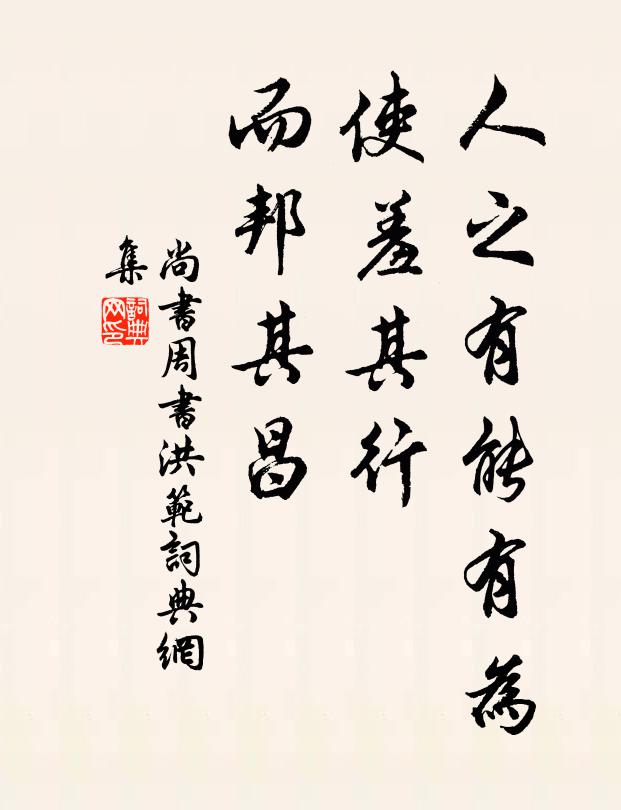 人之有能有為
使羞其行
而邦其昌
尚書周書洪範詞典網
集
詞典
网印